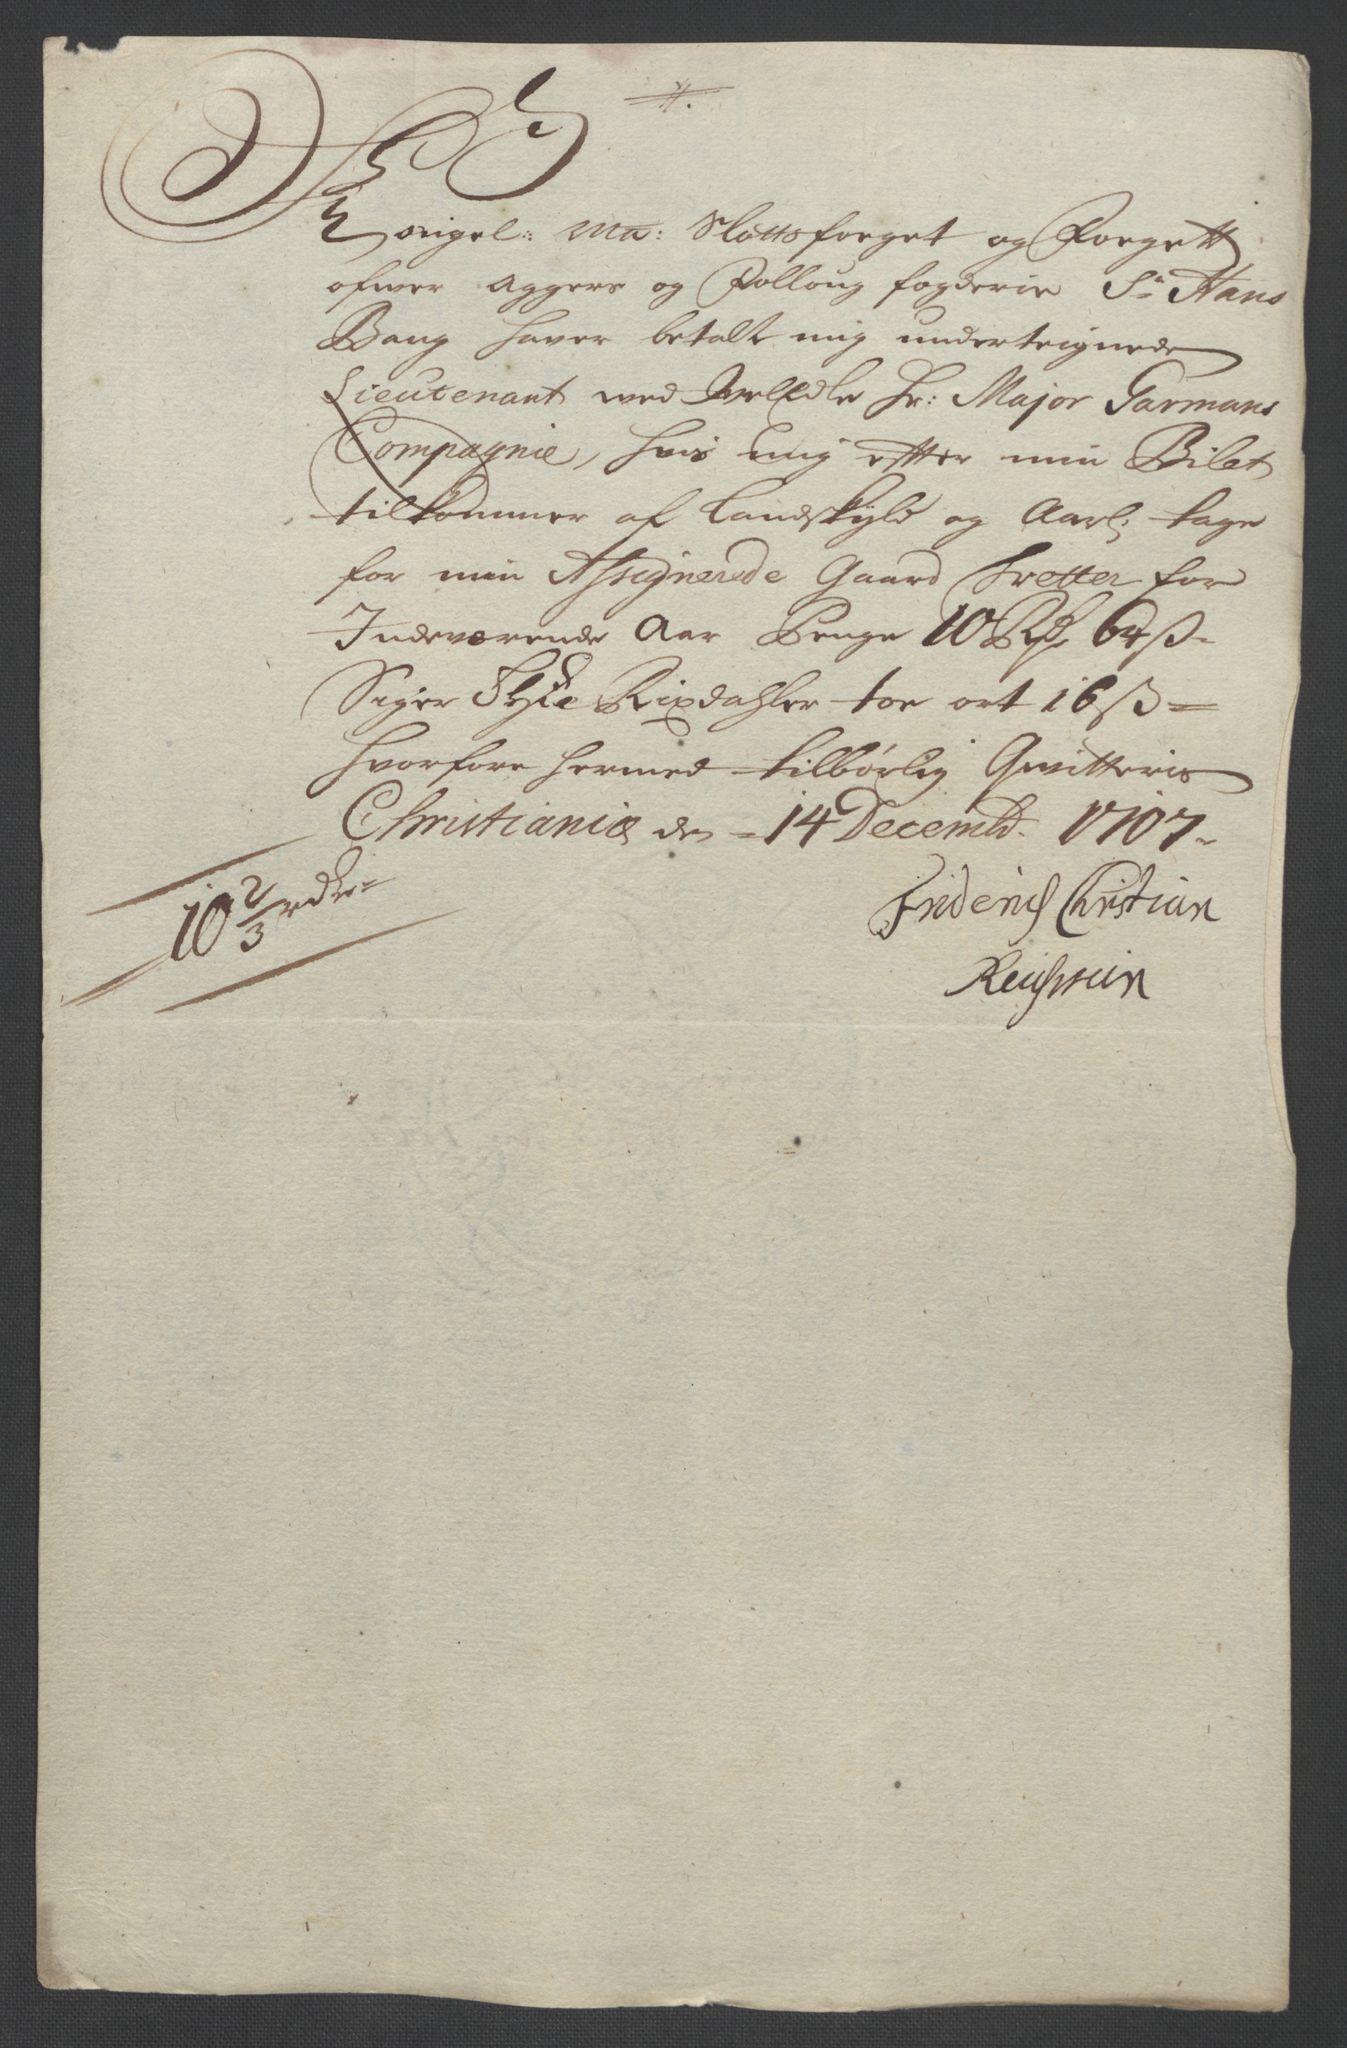 Kongel: Ma: Slottsfoeget og Foegett
ofwer Aggers og Folloug fogderie Sr Hans
Bang hawer betalt mig underteignede
Lieutenant wed Welædle Hr: Major Garmans
Compagnie, hvis mig effter min Bilet
tilkommer af Landskyld og Aarl: tage
for min Assignerede Gaard Tretter for
Indeværende Aar Penge 10 Rd 64 ß
Siger Rixdahler toe ort 16 ß
hvorfore hermed tilbørlig Qvitteris
Christianiæ den 14 Decembr. 1707
10 2/3 rdr
Friderich Christian
Reichwein